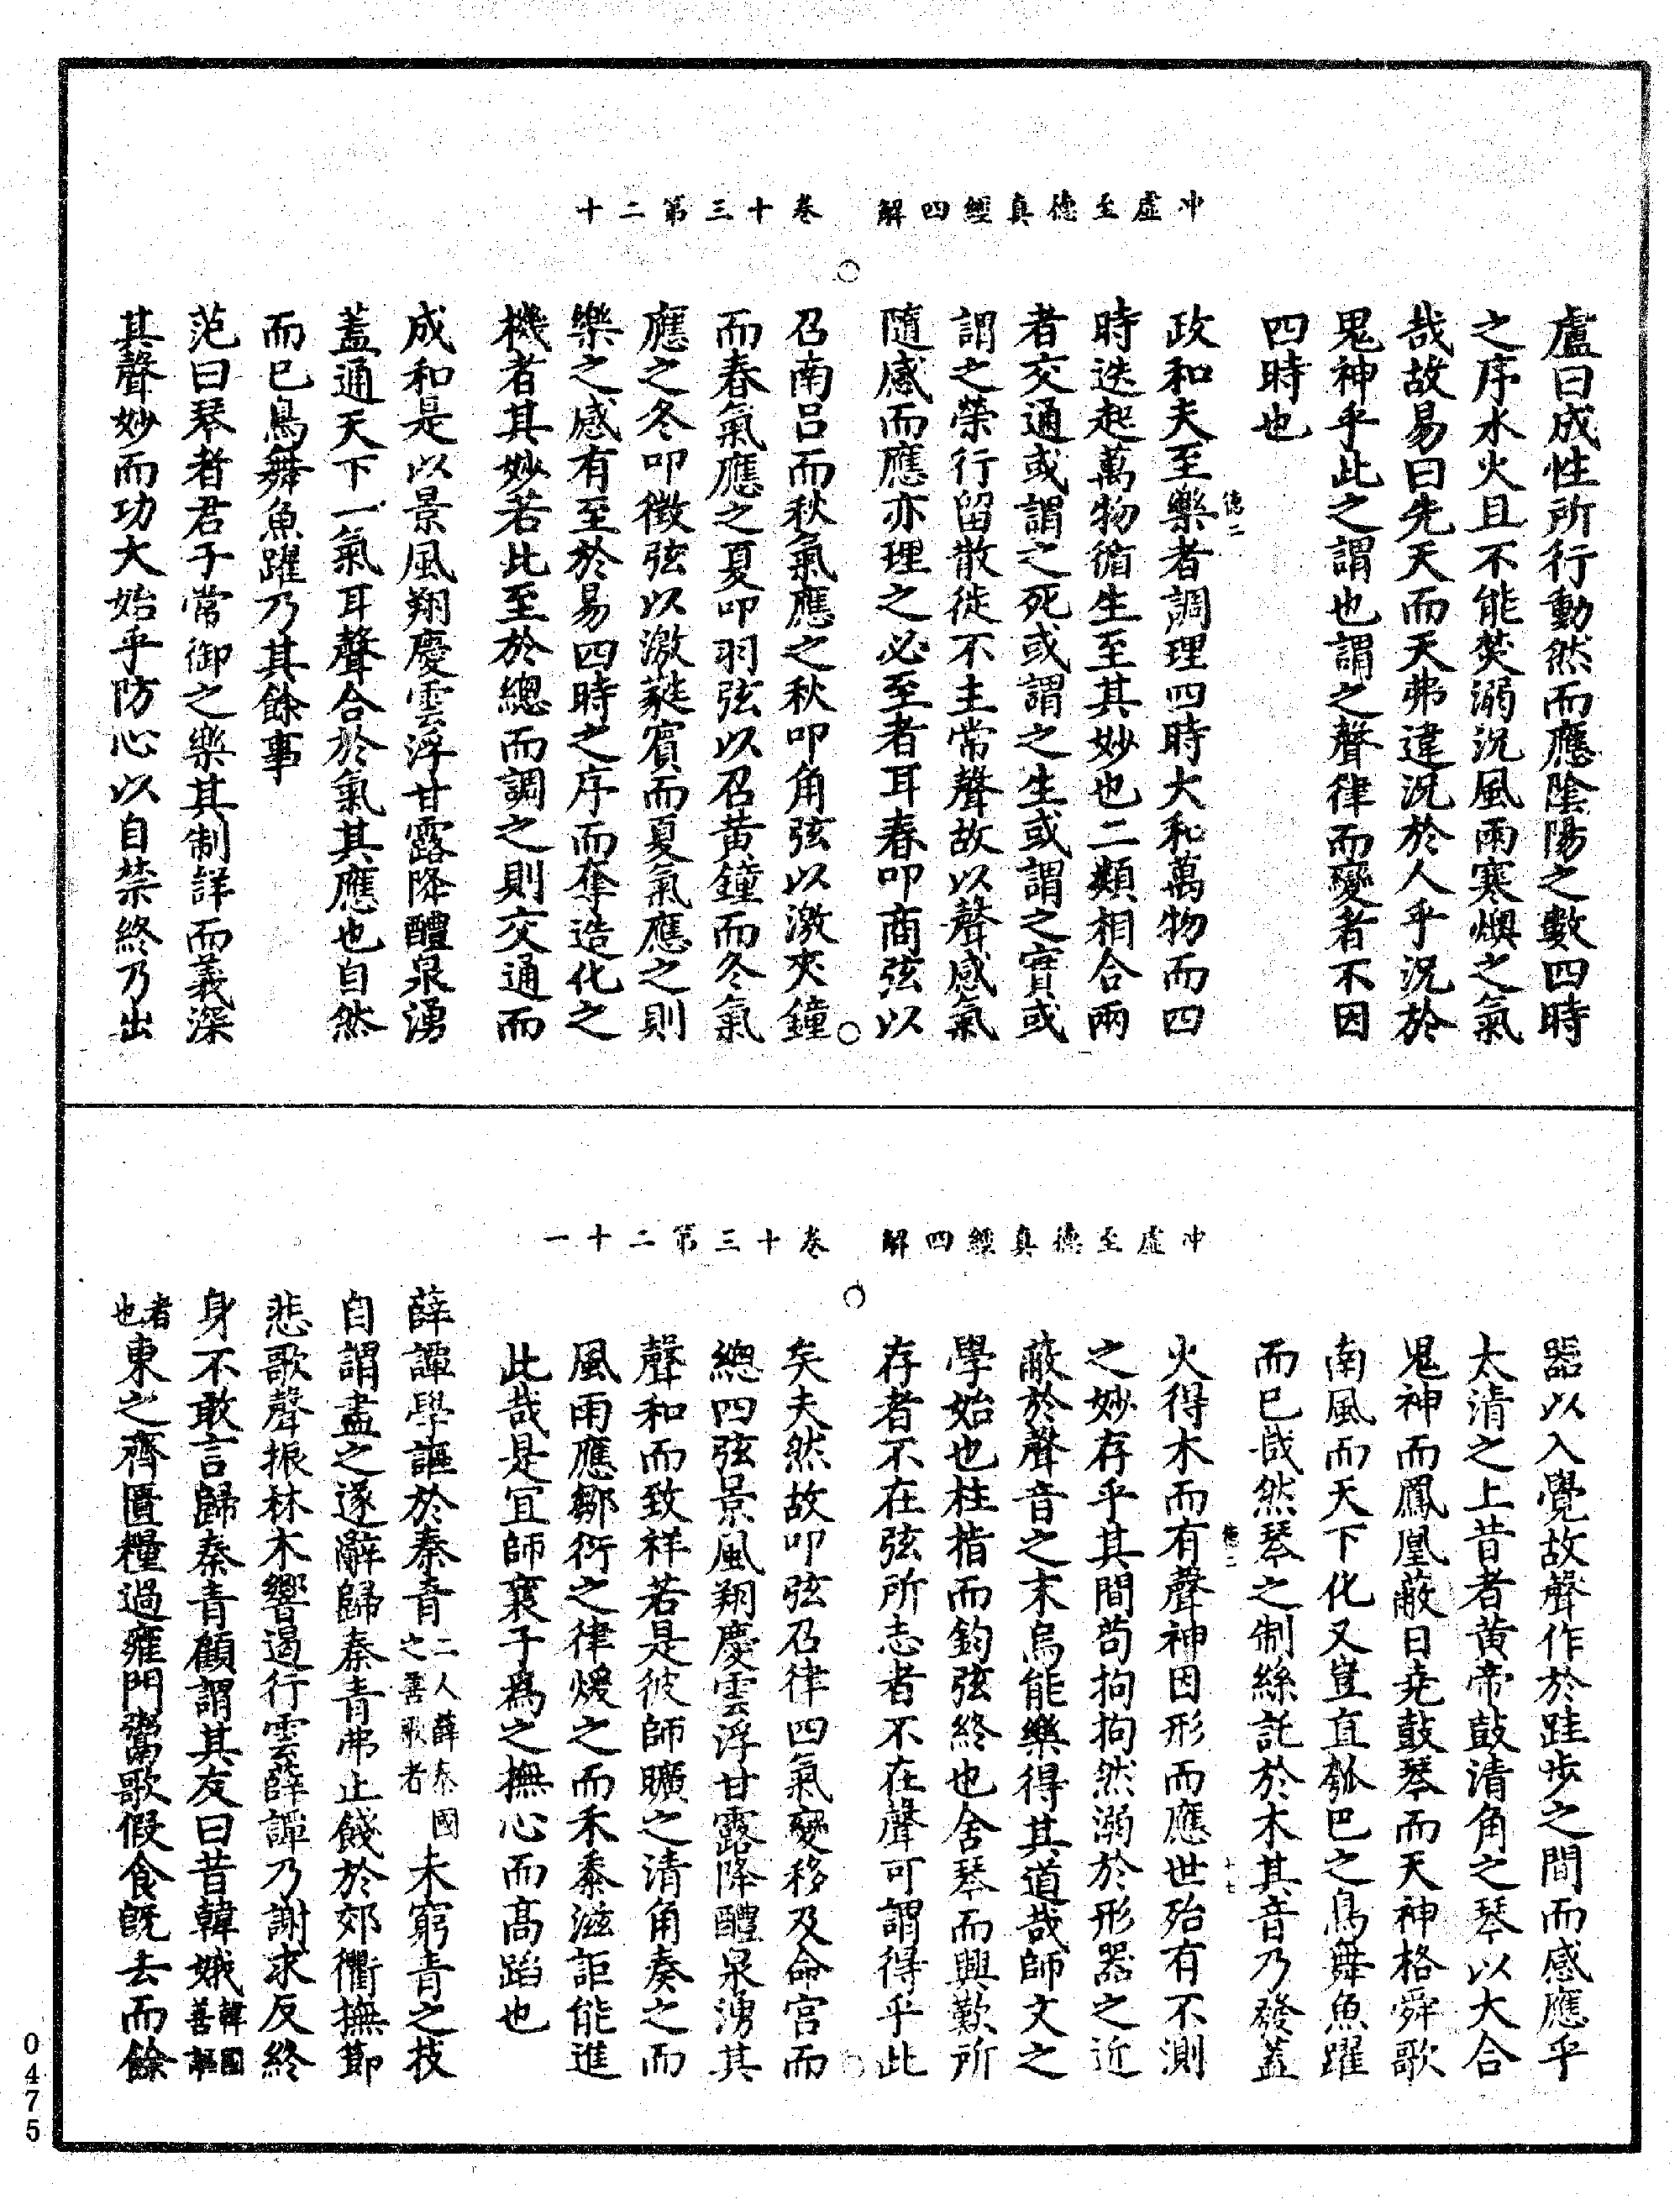 冲虛至德真經四解　卷十三第二十
盧曰成性所行動然而應陰陽之數四時
之序水火且不能焚溺況風雨寒燠之氣
哉故易曰先天而天弗違況於人乎況於
鬼神乎此之謂也謂之聲律而變者不因
四時也
德二
政和夫至樂者調理四時大和萬物而四
時迭起萬物循生至其妙也二類相合兩
者交通或謂之死或謂之生或謂之實或
謂之榮行留散徙不主常聲故以聲感氣
隨感而應亦理之必至者耳春叩商弦以
召南呂而秋氣應之秋叩角弦以激夾鐘
而春氣應之夏叩羽弦以召黃鐘而冬氣
應之冬叩徵弦以激蕤賓而夏氣應之則
樂之感有至於易四時之序而奪造化之
機者其妙若此至於總而調之則交通而
成和是以景風翔慶雲浮甘露降醴泉湧
蓋通天下一氣耳聲合於氣其應也自然
而已鳥舞魚躍乃其餘事
范曰琴者君子常御之樂其制詳而義深
其聲妙而功大始乎防心以自禁終乃出
冲虛至德真經四解　卷十三第二十一
器以入覺故聲作於跬步之間而感應乎
太清之上昔者黃帝鼓清角之琴以大合
鬼神而鳳凰蔽日堯鼓琴而天神格舜歌
南風而天下化又豈直瓠巴之鳥舞魚躍
而已哉然琴之制絲託於木其音乃發蓋
德二
十七
火得木而有聲神因形而應世殆有不測
之妙存乎其間苟拘拘然溺於形器之近
蔽於聲音之末烏能樂得其道哉師文之
學始也柱指而鈞弦終也舍琴而興歎所
存者不在弦所志者不在聲可謂得乎此
矣夫然故叩弦召律四氣變移及命宮而
總四弦景風翔慶雲浮甘露降醴泉湧其
聲和而致祥若是彼師曠之清角奏之而
風雨應鄒衍之律煖之而禾黍滋詎能進
此哉是宜師襄子為之撫心而高蹈也
薛譚學謳於秦青二人薛秦國之善歌者未窮青之技
自謂盡之遂辭歸秦青弗止餞於郊衢撫節
悲歌聲振林木響遏行雲薛譚乃謝求反終
身不敢言歸秦青顧謂其友曰昔韓娥韓國善謳
者也東之齊匱糧過雍門鬻歌假食既去而餘
0475